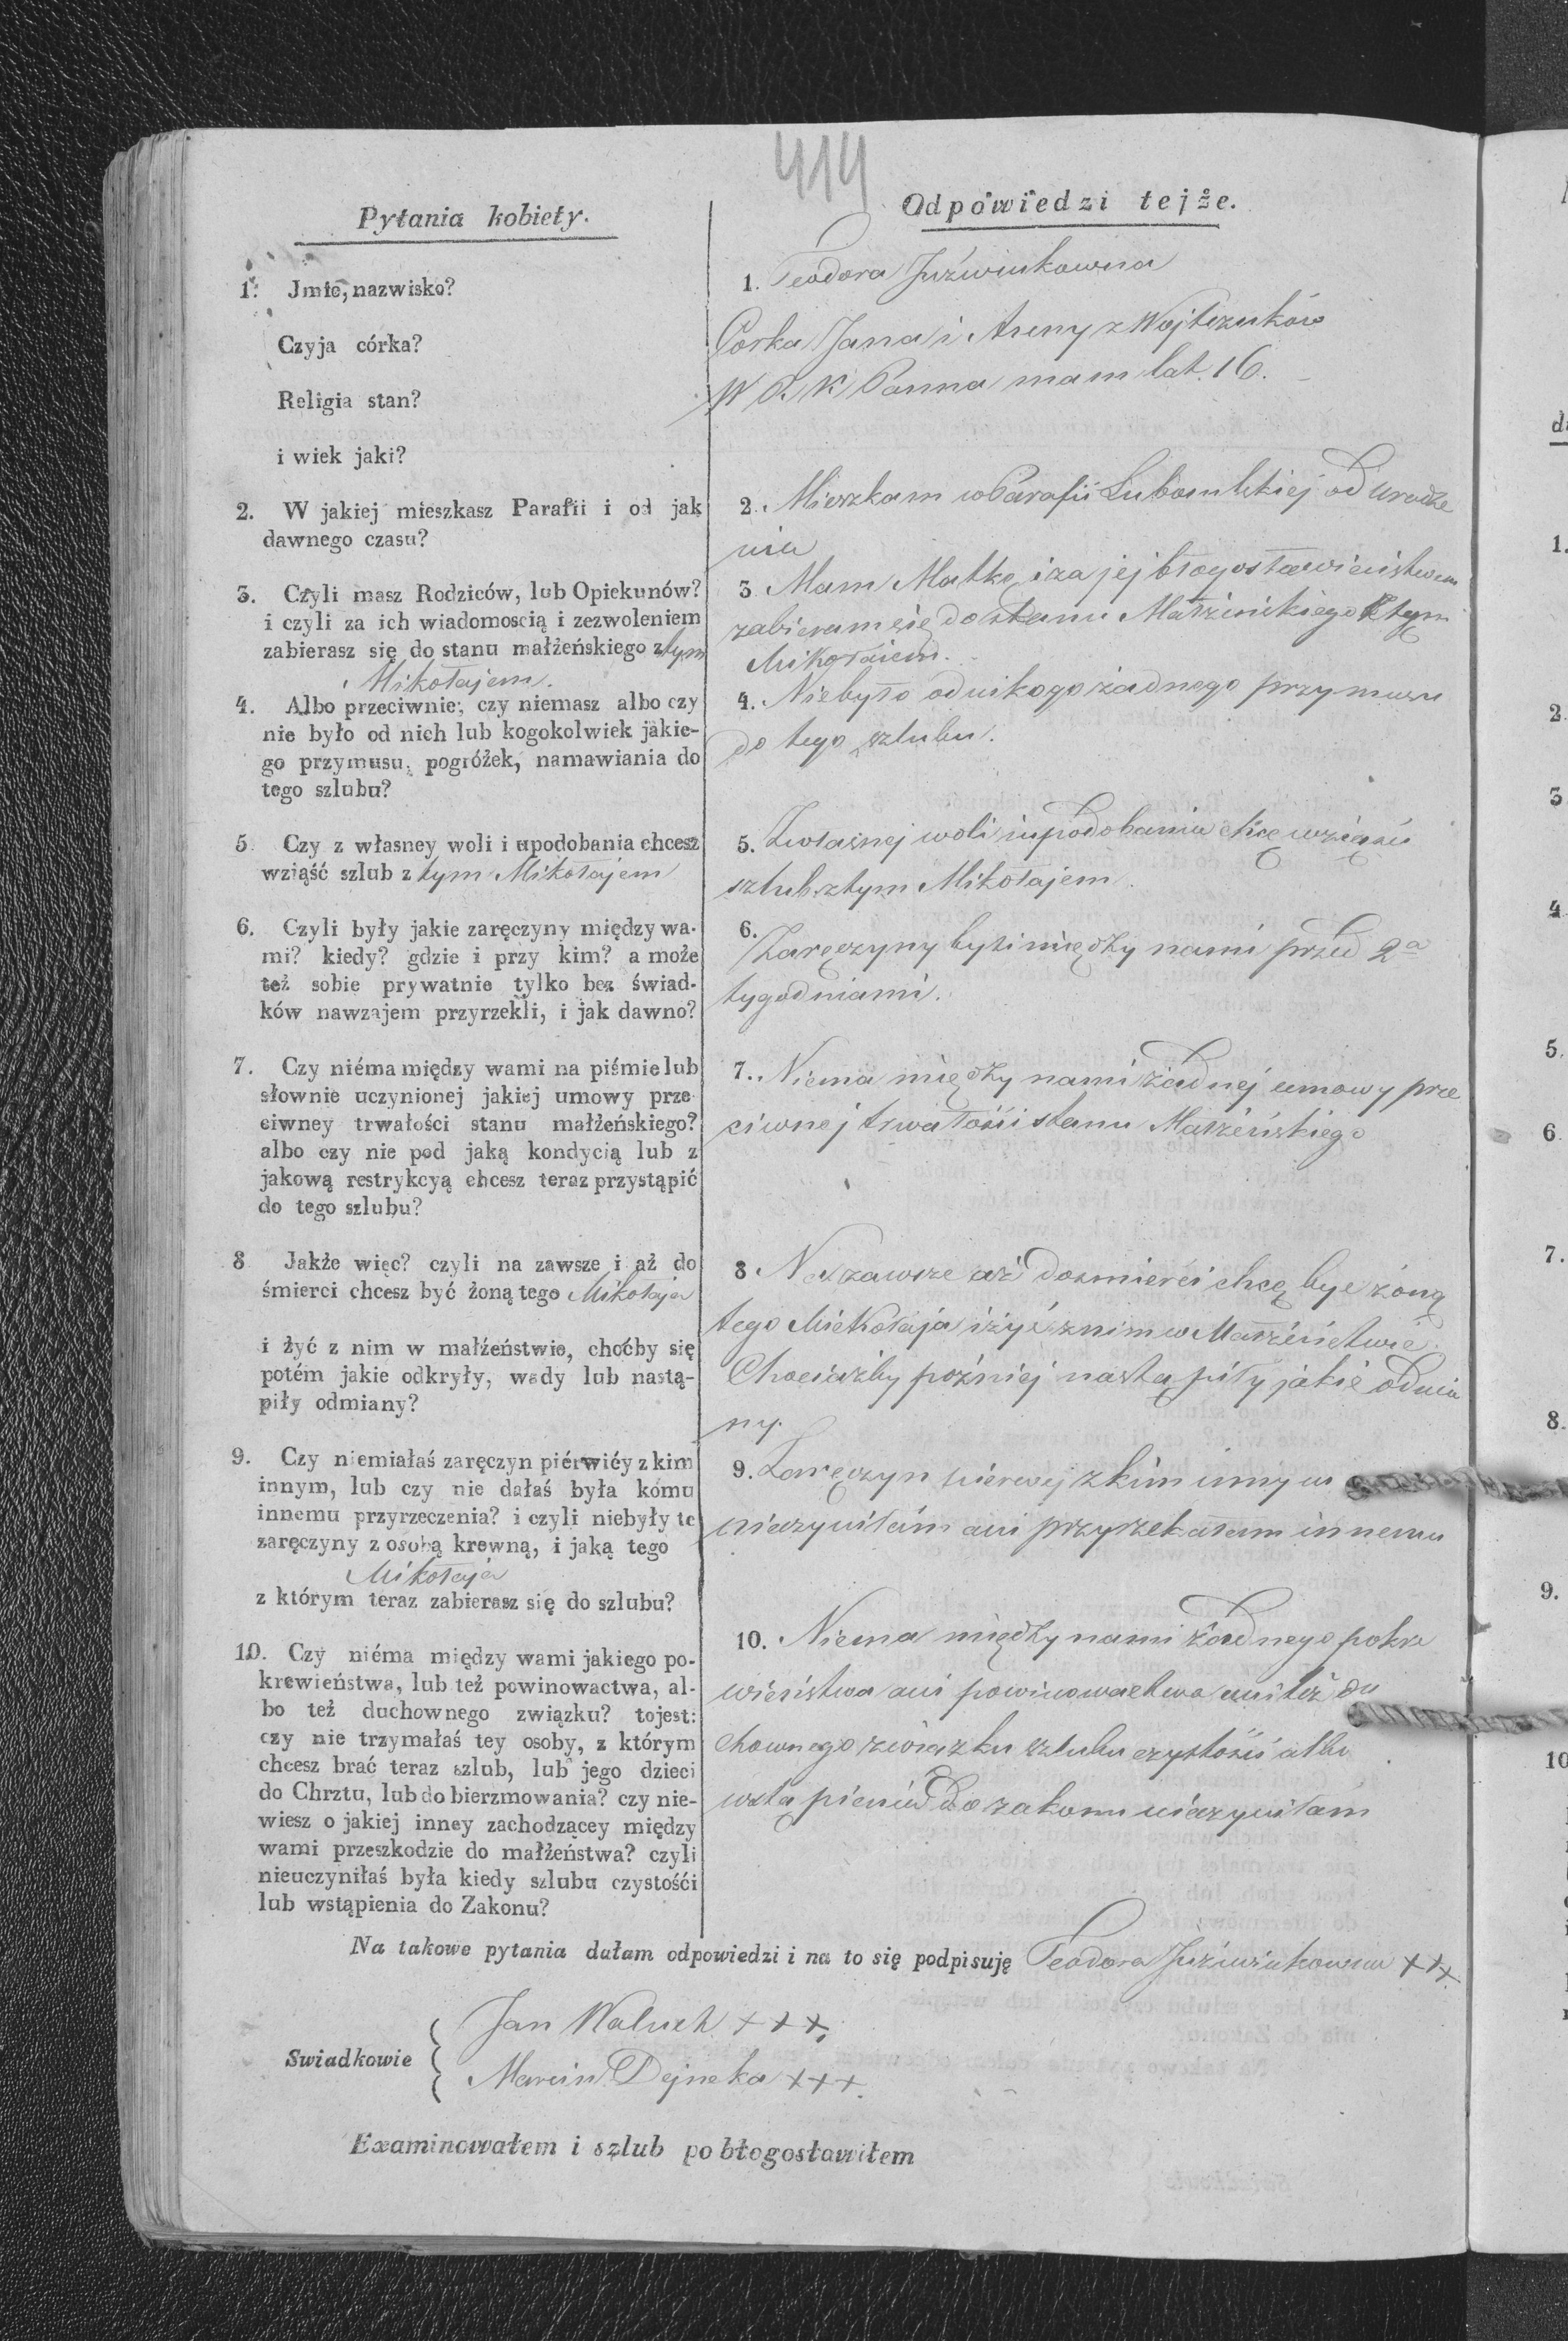 414
Pytania kobiety.
1. Jmie, nazwisko?
Czyja córka?
Religia stan?
i wiek jaki?
2. W jakiej mieszkasz Parafii i od jak
dawnego czasu?
3. Czyli masz Rodziców, lub Opiekunów?
i czyli za ich wiadomoscią i zezwoleniem
zabierasz się do stanu małżeńskiego z tym
Mikołajem.
4. Albo przeciwnie, czy niemasz albo czy
nie było od nich lub kogokolwiek jakie-
go przymusu, pogróżek, namawiania do
tego szlubu?
5. Czy z własney woli i upodobania chcesz
wziąść szlub z tym Mikołajem
6. Czyli były jakie zaręczyny między wa-
mi? kiedy? gdzie i przy kim? a może
też sobie prywatnie tylko bez świad-
ków nawzajem przyrzekli, i jak dawno?
7. Czy niéma między wami na piśmie lub
słownie uczynionej jakiej umowy prze
ciwney trwałości stanu małżeńskiego?
albo czy nie pod jaką kondycią lub z
jakową restrykcyą chcesz teraz przystąpić
do tego szlubu?
8 Jakże więc? czyli na zawsze i aż do
śmierci chcesz być żoną tego Mikołaja
i żyć z nim w małżeństwie, choćby się
potém jakie odkryły, wady lub nastą-
piły odmiany?
9. Czy niemiałaś zaręczyn piérwiéy z kim
innym, lub czy nie dałaś była komu
innemu przyrzeczenia? i czyli niebyły te
zaręczyny z osobą krewną, i jaką tego
Mikołaja
z którym teraz zabierasz się do szlubu?
10. Czy niéma między wami jakiego po-
krewieństwa, lub też powinowactwa, al-
bo też duchownego związku? tojest:
czy nie trzymałaś tey osoby, z którym
chcesz brać teraz szlub, lub jego dzieci
do Chrztu, lub do bierzmowania? czy nie-
wiesz o jakiej inney zachodzącey między
wami przeszkodzie do małżeństwa? czyli
nieuczyniłaś była kiedy szlubu czystośći
lub wstąpienia do Zakonu?
Odpowiedzi tejże.
1. Teodora Juźwiukowna
Corka Jana i Areny z Wojtczuków
W O. K Panna mam lat. 16.
2. Mieszkam w Parafii Lubomlskiej od urodze
nia
3. Mam Matkę i za jej błogosławieństwem
zabieram się do stanu Małżeńskiego z tym
Mikołaiem.
4. Niebyło od nikogo żadnego przymusu
do tego szlubu.
5. Zwłasnej woli i upodobania chcę wziąść
szlub z tym Mikołajem.
6. Zaręczyny byli między nami przed 2a
tygodniami.
7. Niema między nami żadnej umowy prze
ciwnej trwałości stanu Małżeńskiego
8 Na zawsze aż do smierci chcę byc żoną
tego Mikołaja i żyć z nim w Małżeństwie.
Chociażby poźniej nastąpiły jakie odmia
ny.
9. Zaręczyn pierwej z kim innym
nieczyniłam ani przyrzekałam innemu
10. Niema między nami żadnego pokre
wieństwa ani powinowactwa ani też du
chownego związku szlubu czystośći albo
wstąpienia do zakonu nieczyniłam
Na takowe pytania dałam odpowiedzi i na to się podpisuję Teodora Juźwiukowna +++
Swiadkowie
Jan Waluch +++
Marcin Dejneka +++.
Examinowałem i szlub pobłogosławiłem
1.
2
3
4
5.
6
7.
8.
9.
10